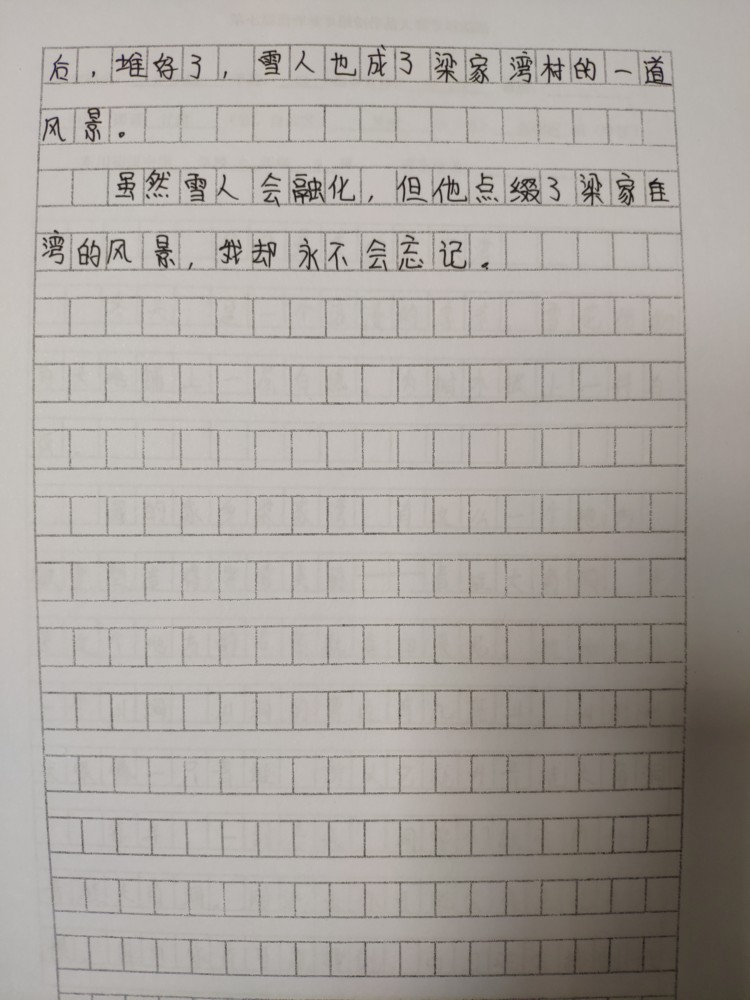 后，堆好了，雪人也成了梁家湾村的一道
风景。
虽然雪人会融化，但他点缀了梁家
湾的风景，我却永不会忘记。